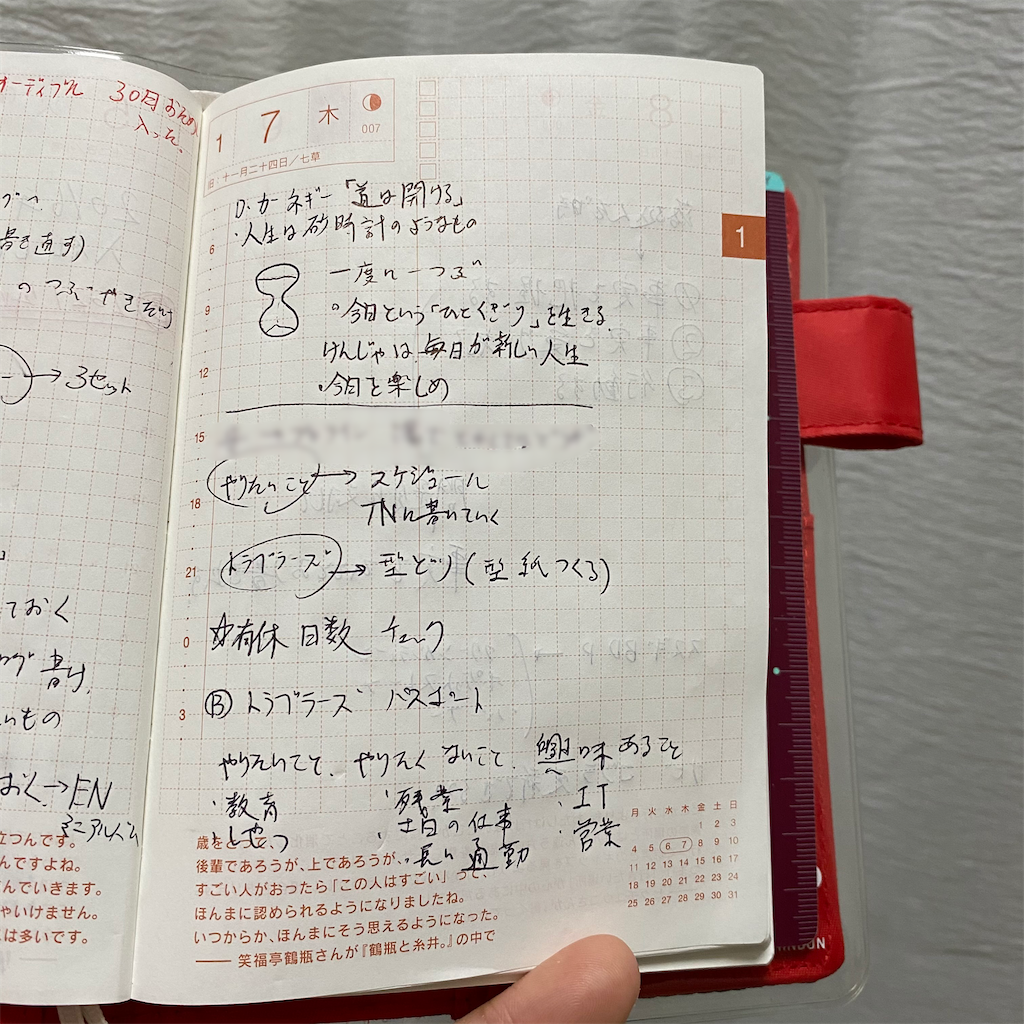 オーディブル 30日
入った。
書き直す)
のつぶやき
→3セット
ておく
書け
いもの
おく→EN
ミニアルバム
立つんです。
んですよね。
んでいきます。
ゃいけません。
は多いです。
1 7 木
007
旧・十一月二十四日/七草
D・カーネギー「道は開ける」
・人生は砂時計のようなもの
一度に一つぶ
○今日という「ひとくぎり」を生きる
けんじゃは、毎日が新しい人生
・今日を楽しめ
やりたいこと→スケジュール
TNに書いていく
トラブラーズ→型どり(型紙つくる)
有休日数 チェック
Ⓑトラブラーズ パスポート
やりたいこと、やりたくないこと、興味あること
・教育
・残業
・IT
・土日の仕事
・営業
・長い通勤
6
9
12
15
18
21
0
3
歳をとって、
後輩であろうが、上であろうが、
すごい人がおったら「この人はすごい」って、
ほんまに認められるようになりましたね。
いつからか、ほんまにそう思えるようになった。
—— 笑福亭鶴瓶さんが『鶴瓶と糸井。』の中で
月 火 水 木 金 土 日
1 2 3
4 5 6 7 8 9 10
11 12 13 14 15 16 17
18 19 20 21 22 23 24
25 26 27 28 29 30 31
1